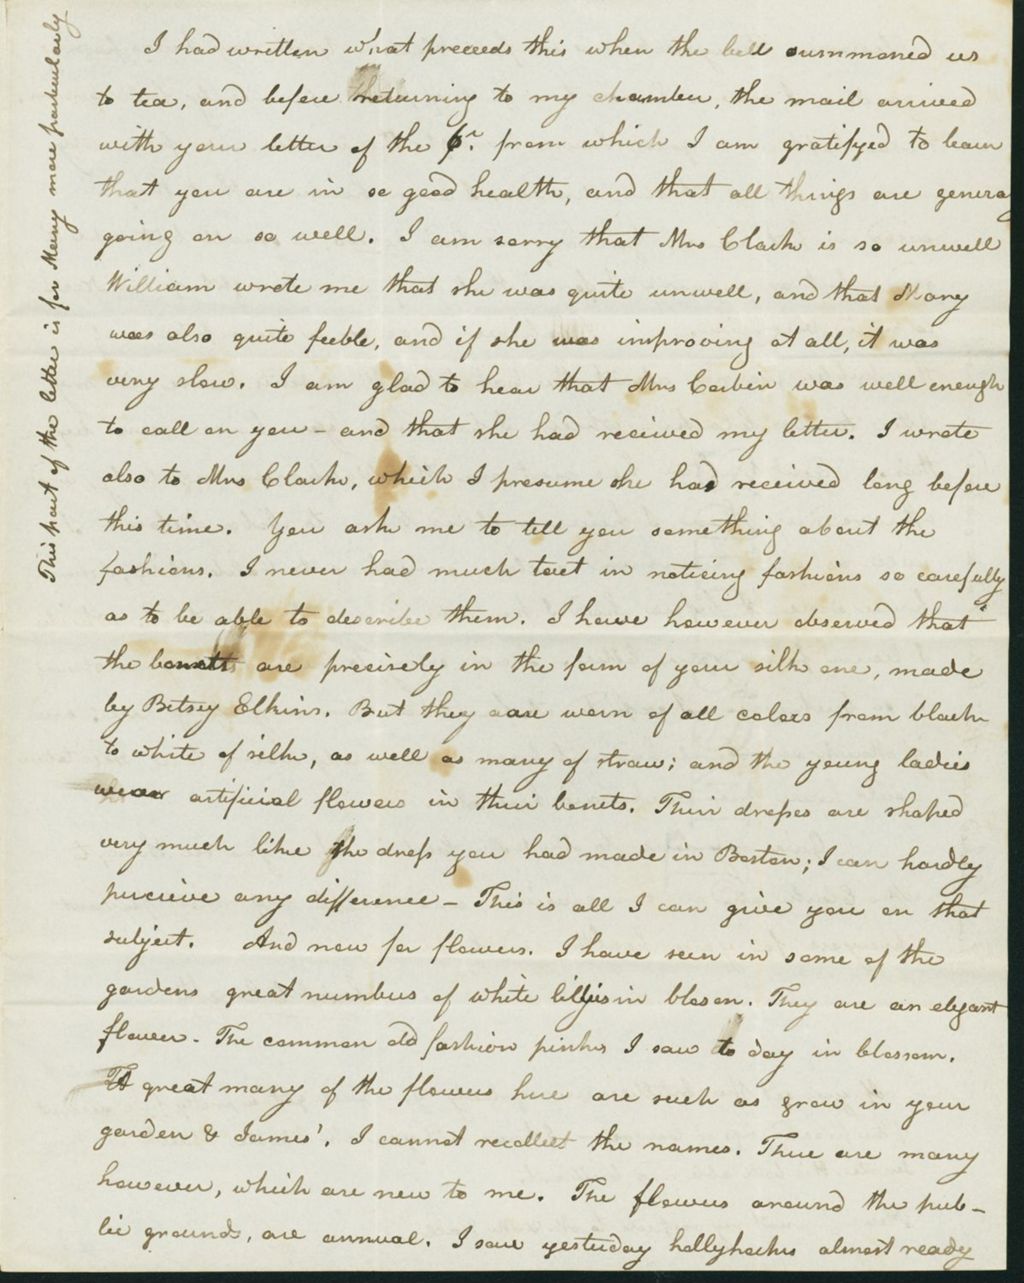 This part of the letter is for Mary more particularly
I had written what preceeds this when the bell summoned us
to tea, and before returning to my chamber, the mail arrived
with your letter of the from which I am gratifyed to learn
that you are in so good health, and that all things are genera
going on so well. I am sorry that Mrs Clark is so unwell
William wrote me that she was quite unwell, and that Mary
was also quite feeble, and if she was improving at all, it was
very slow. I am glad to hear that Mrs Corbin was well enough
to call on you – and that she had received my letter. I wrote
also to Mrs Clark, which I presume she had received long before
this time. You ask me to tell you something about the
fashions. I never had much tact in noticing fashions so carefully
as to be able to describe them. I have however observed that
the bonetts are precisely in the form of your silk one, made
by Betsey Elkins. But they are worn of all colors from black
to white of silk, as well as many of straw; and the young ladies
wear artificial flowers in their bonets. Their dresses are shaped
very much like the dress you had made in Boston; I can hardly
percieve any difference – This is all I can give you on that
subject. And now for flowers. I have seen in some of the
gardens great numbers of white lillies in blosom. They are an elegant
flower. The common old fashion pinks I saw to day in blossom.
A great many of the flowers here are such as grow in your
garden & James'. I cannot recollect the names. There are many
however, which are new to me. The flowers around the pub-
lic ground, are annual. I saw yesterday hollyhocks almost ready